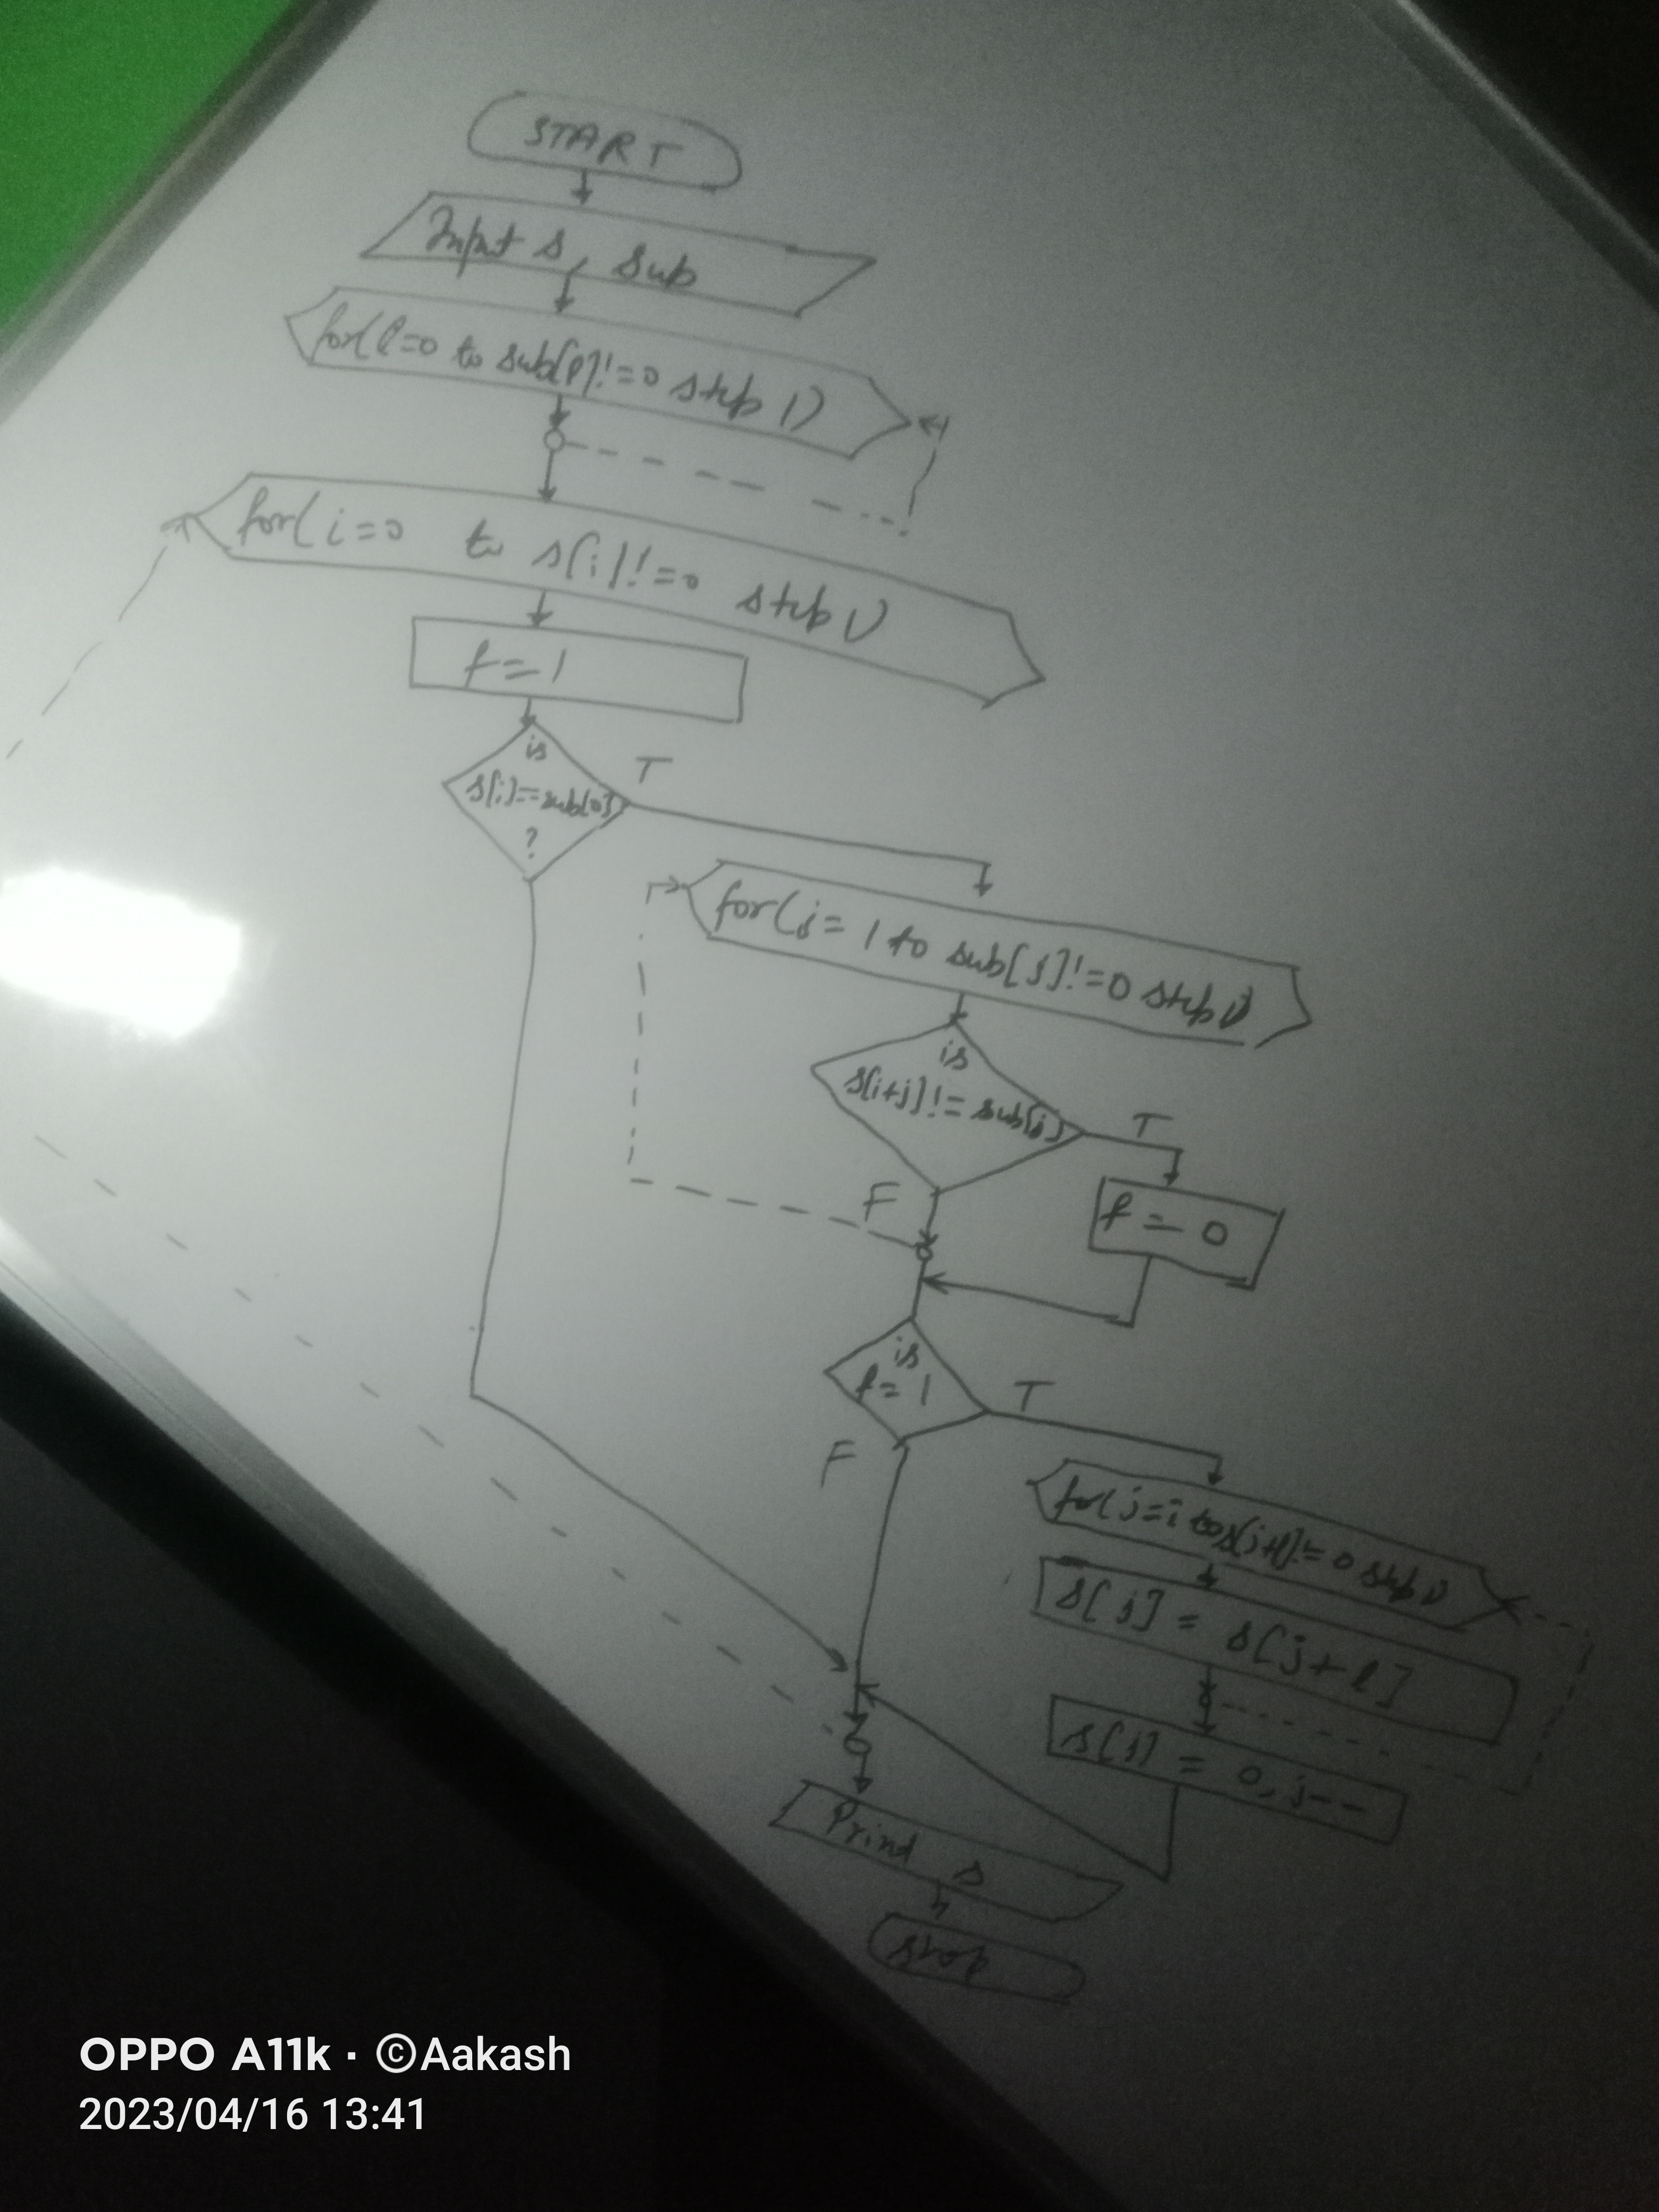 START
Input s, sub
for(l=0 to sub[l]!=0 step 1)
for(i=0 to s[i]!=0 step 1)
f=1
is
s[i]==sub[0]
?
T
for(j=1 to sub[j]!=0 step 1)
is
s[i+j]!=sub[j]
T
F
f=0
is
f=1
T
F
for(j=i to s[j+l]!=0 step 1)
s[j] = s[j+l]
s[j] = 0, j--
Print s
stop
OPPO A11k · ©Aakash
2023/04/16 13:41